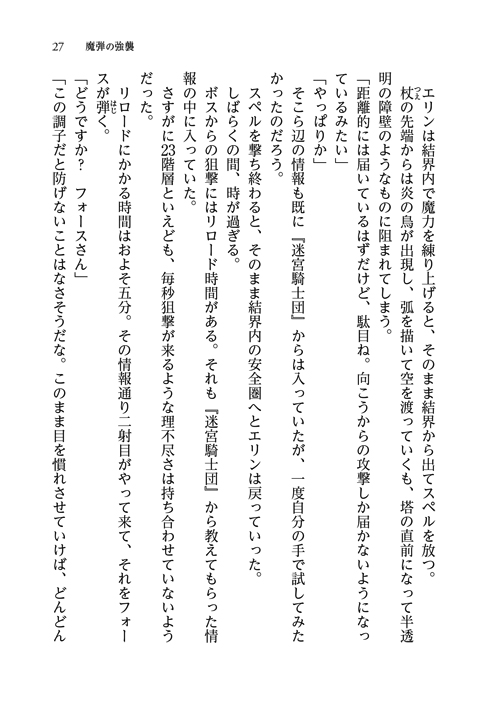 27　魔弾の強襲
　エリンは結界内で魔力を練り上げると、そのまま結界から出てスペルを放つ。
　杖の先端からは炎の鳥が出現し、弧を描いて空を渡っていくも、塔の直前になって半透
明の障壁のようなものに阻まれてしまう。
「距離的には届いているはずだけど、駄目ね。向こうからの攻撃しか届かないようになっ
ているみたい」
「やっぱりか」
　そこら辺の情報も既に『迷宮騎士団』からは入っていたが、一度自分の手で試してみた
かったのだろう。
　スペルを撃ち終わると、そのまま結界内の安全圏へとエリンは戻っていった。
　しばらくの間、時が過ぎる。
　ボスからの狙撃にはリロード時間がある。それも『迷宮騎士団』から教えてもらった情
報の中に入っていた。
　さすがに23階層といえども、毎秒狙撃が来るような理不尽さは持ち合わせていないよう
だった。
　リロードにかかる時間はおよそ五分。その情報通り二射目がやって来て、それをフォー
スが弾く。
「どうですか？　フォースさん」
「この調子だと防げないことはなさそうだな。このまま目を慣れさせていけば、どんどん